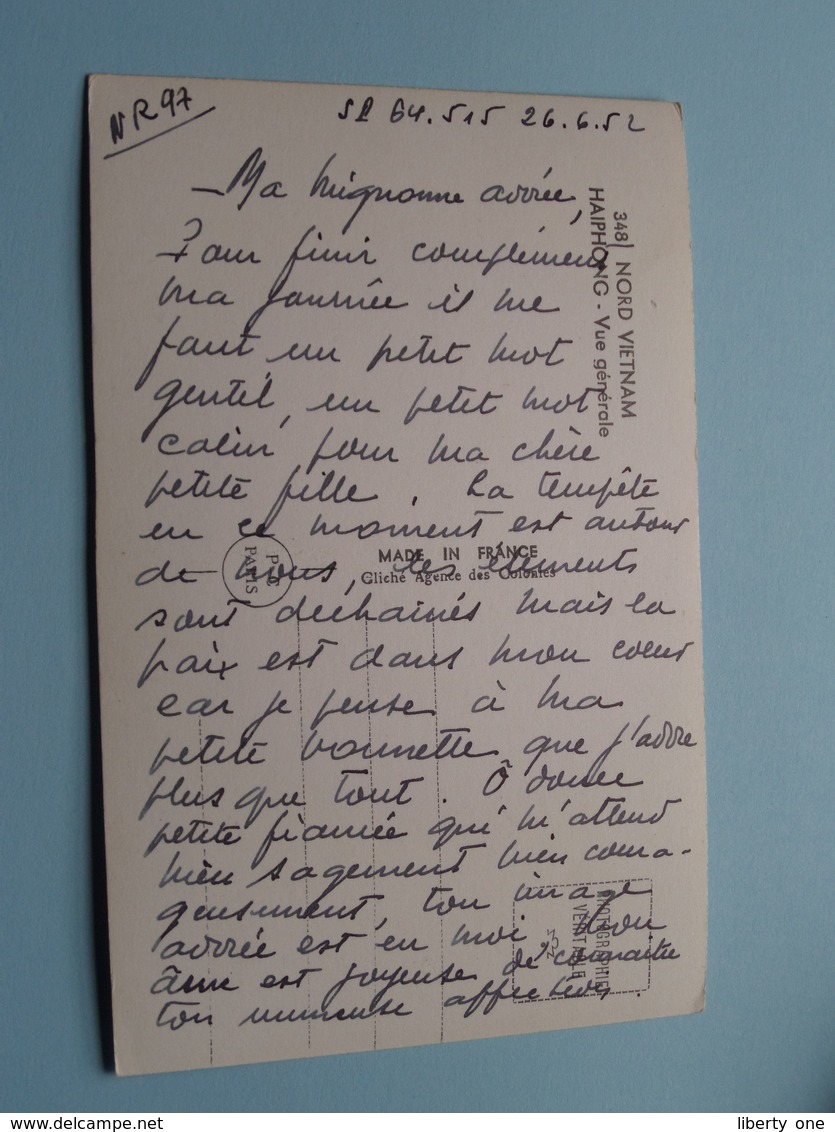 NR 97
SP 64.515 26.6.52
348 NORD VIETNAM
HAIPHONG - Vue générale
- Ma mignonne adorée,
Pour finir complèment
ma journée il me
faut un petit mot
gentil, un petit mot
calin pour ma chère
petite fille. La tempête
en ce moment est autour
de nous, les éléments
sont dechainés mais la
paix est dans mon coeur
car je pense à ma
petite que j'adore
plus que tout. Ô douce
petite fiancée qui m'attend
bien sagement bien coura-
geusement, ton image
adorée est en moi. Mon
âme est joyeuse de connaitre
ton immense affection
MADE IN FRANCE
Cliché Agence des Colonies
PARIS
PHOTOGRAPHIE
VÉRITABLE
delcampe.net
liberty one